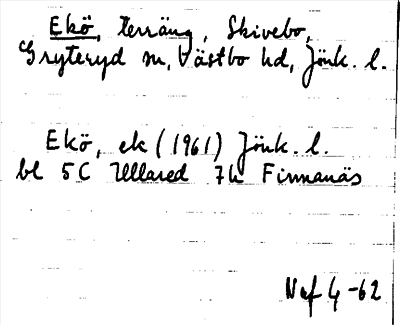 Ekö, terräng, Skivebo,
Gryteryd sn, Västbo hd, Jönk. l.
Ekö, ek (1961) Jönk. l.
bl 5C Ullared 7h Finnanäs
Naf 4-62